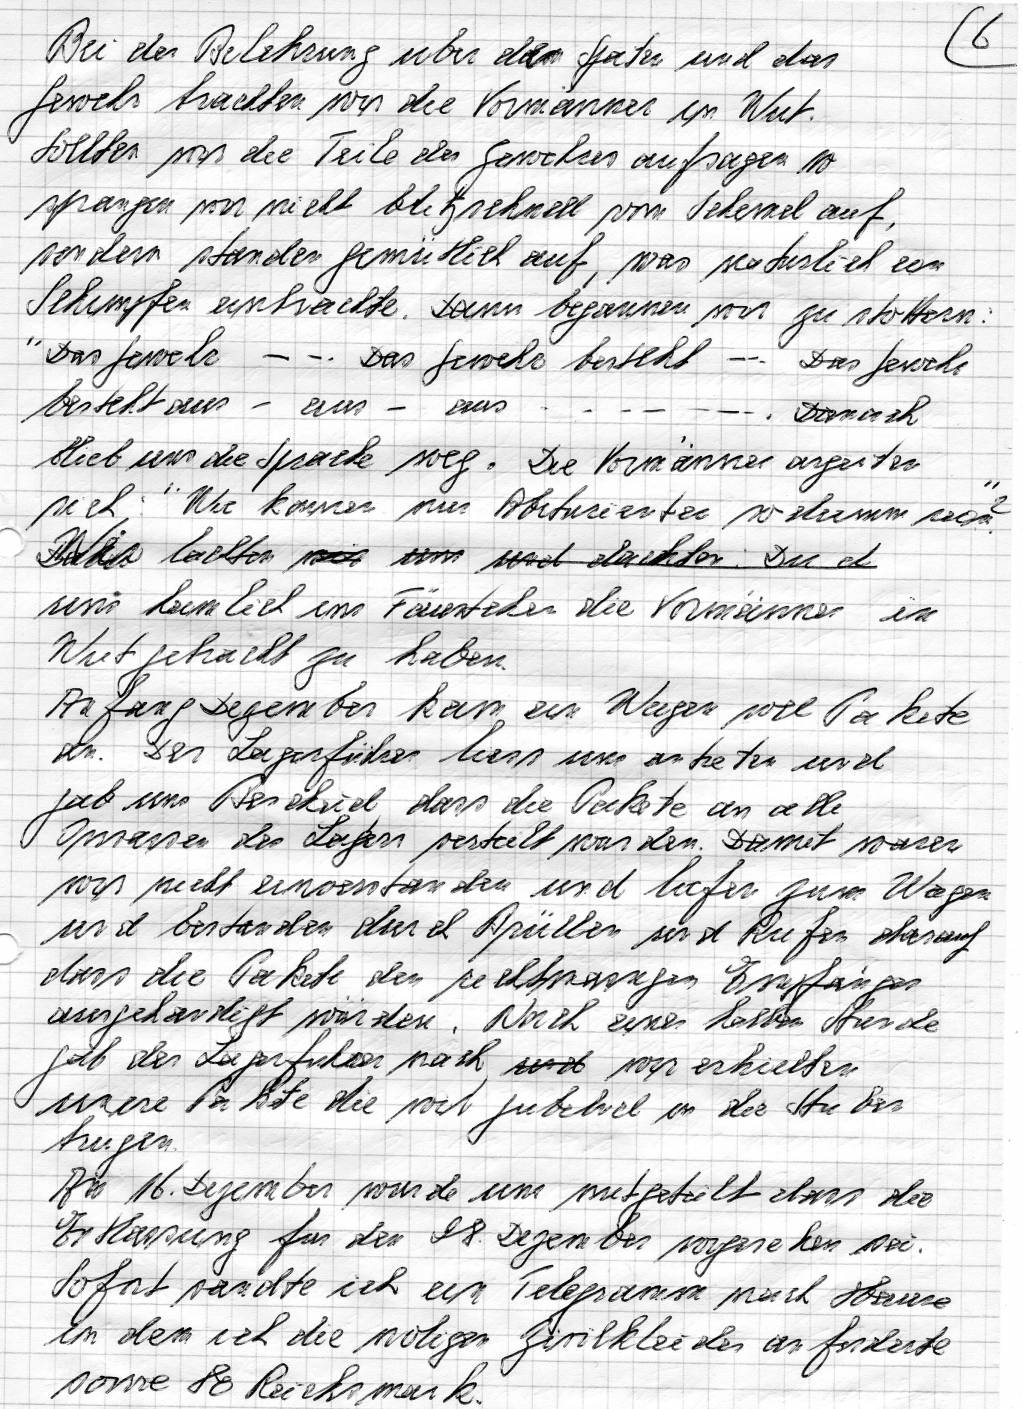 6
Bei der Belehrung uber den Spaten und das
Gewehr brachten wir die Vormänner in Wut.
Sollten wir die Teile des Gewehres aufsagen so
sprangen wir nicht blitzschnell vom Schemel auf,
sondern standen gemütlich auf, was naturlich ein
Schimpfen einbrachte. Dann begannen wir zu stottern:
"Das Gewehr --- Das Gewehr besteht --- Das Gewehr
besteht aus - aus - aus - - - - - - -. Danach
blieb uns die Sprache weg. Die Vormänner argerten
sich: "Wie konnen nur Abiturienten so dumm sein?"
lachten wir uns und dachten: Du d
uns heimlich ins Fäustchen die Vormänner in
Wut gebracht zu haben.
Anfang Dezember kam ein Wagen voll Pakete
an. Der Lagerführer liess uns antreten und
gab uns Bescheid dass die Pakete an alle
Insassen des Lagers verteilt wurden. Damit waren
wir nicht einverstanden und liefen zum Wagen
und bestanden durch Brüllen und Rufen darauf
dass die Pakete den rechtmassigen Empfänger
ausgehandigt würden. Nach einer halben Stunde
gab der Lagerfuhrer nach, und wir erhielten
unsere Pakete die wir jubelnd in die Stuben
trugen.
Am 16. Dezember wurde uns mitgeteilt dass die
Entlassung fur den 28. Dezember vorgesehen sei.
Sofort sandte ich ein Telegramm nach Hause
in dem ich die notigen Zivilkleider anforderte
sowie 80 Reichsmark.